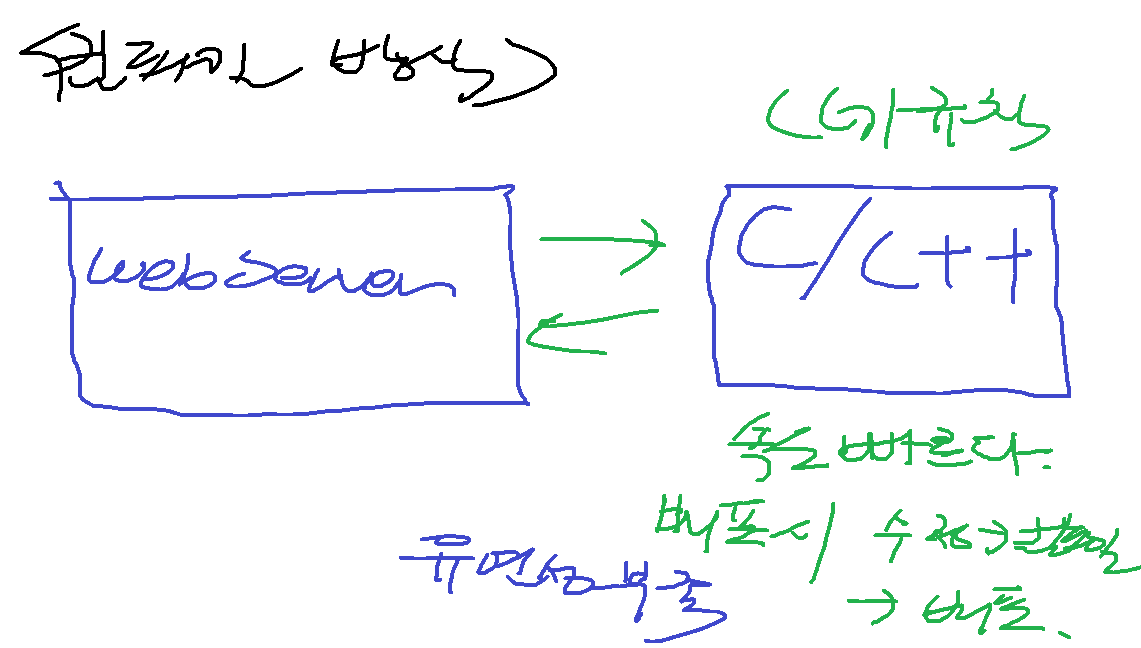 <컴파일 방식>
CGI 규칙
web server
C/C++
속도 빠르다.
배포시 수정→컴파일
→ 배포.
유연성 부족